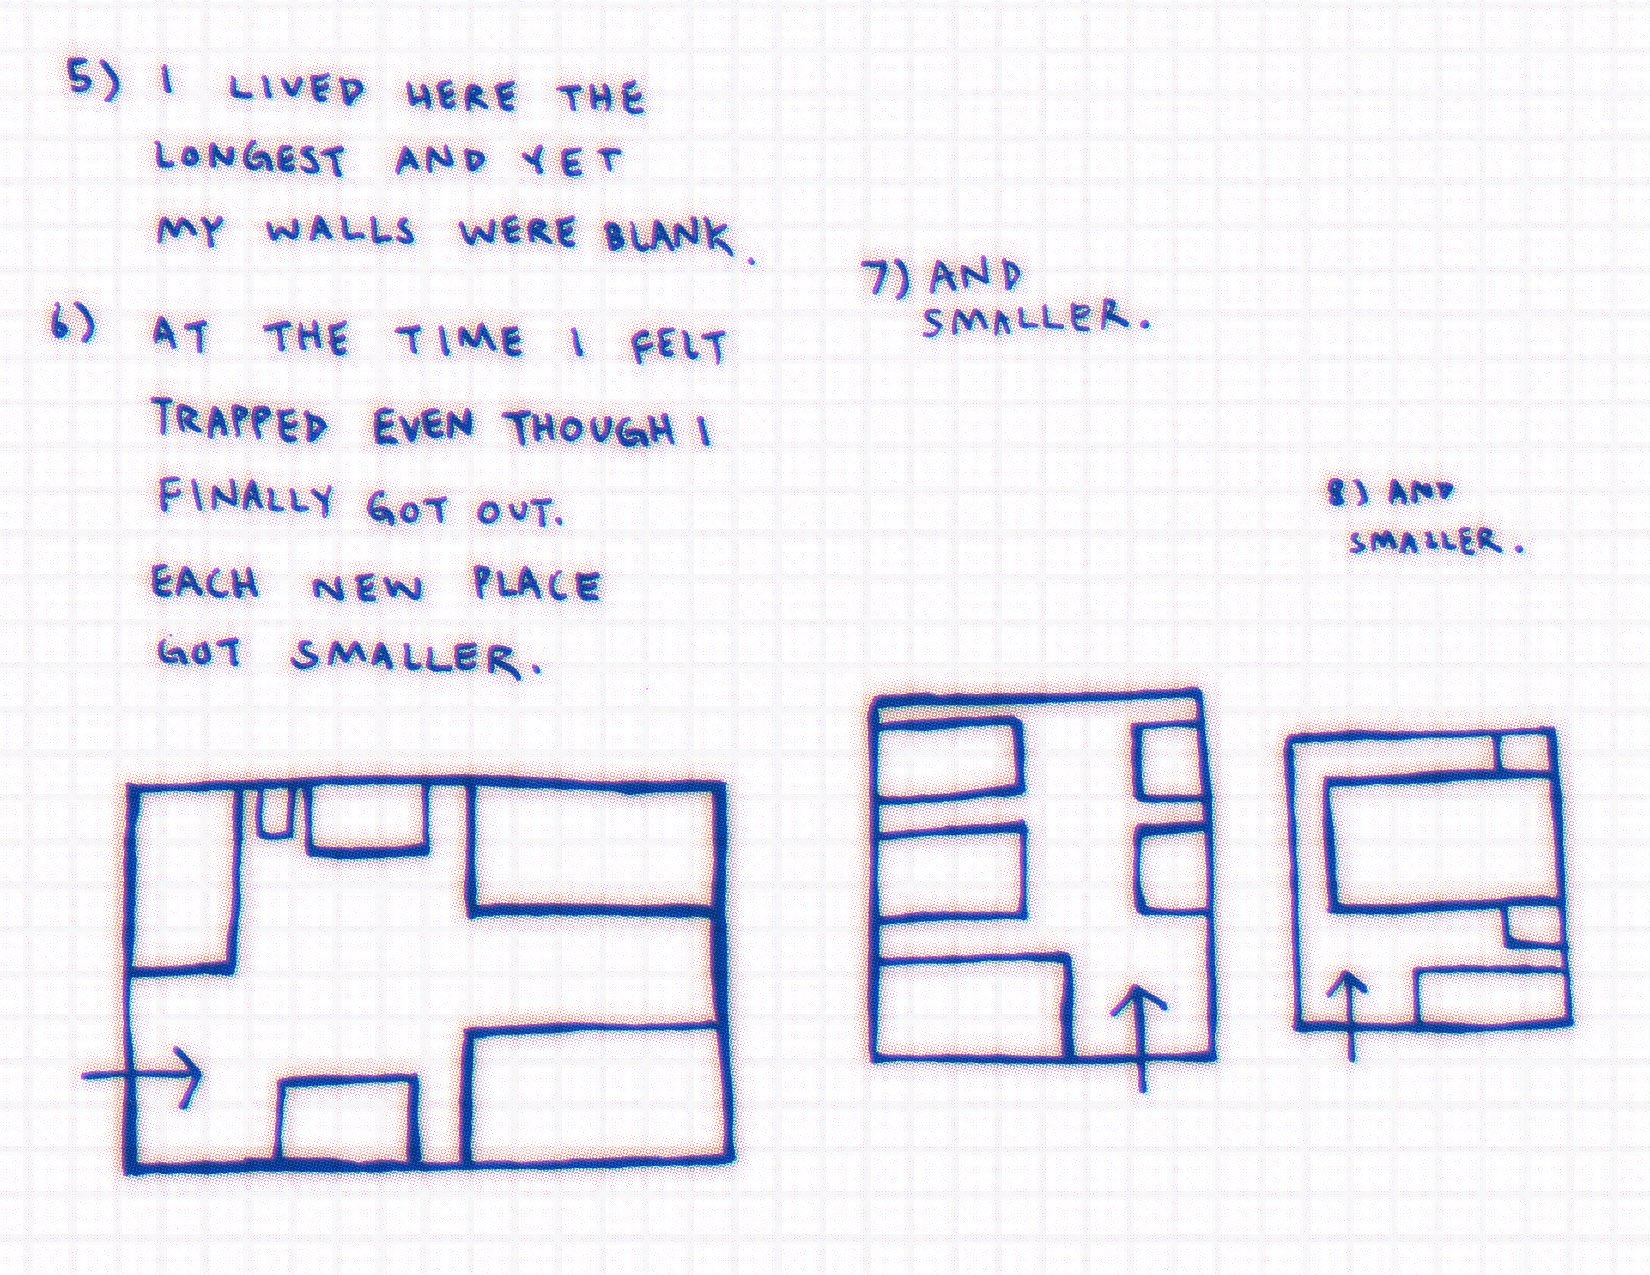 5) I LIVED HERE THE
LONGEST AND YET
MY WALLS WERE BLANK.
6) AT THE TIME I FELT
TRAPPED EVEN THOUGH I
FINALLY GOT OUT.
EACH NEW PLACE
GOT SMALLER.
7) AND
SMALLER.
8) AND
SMALLER.